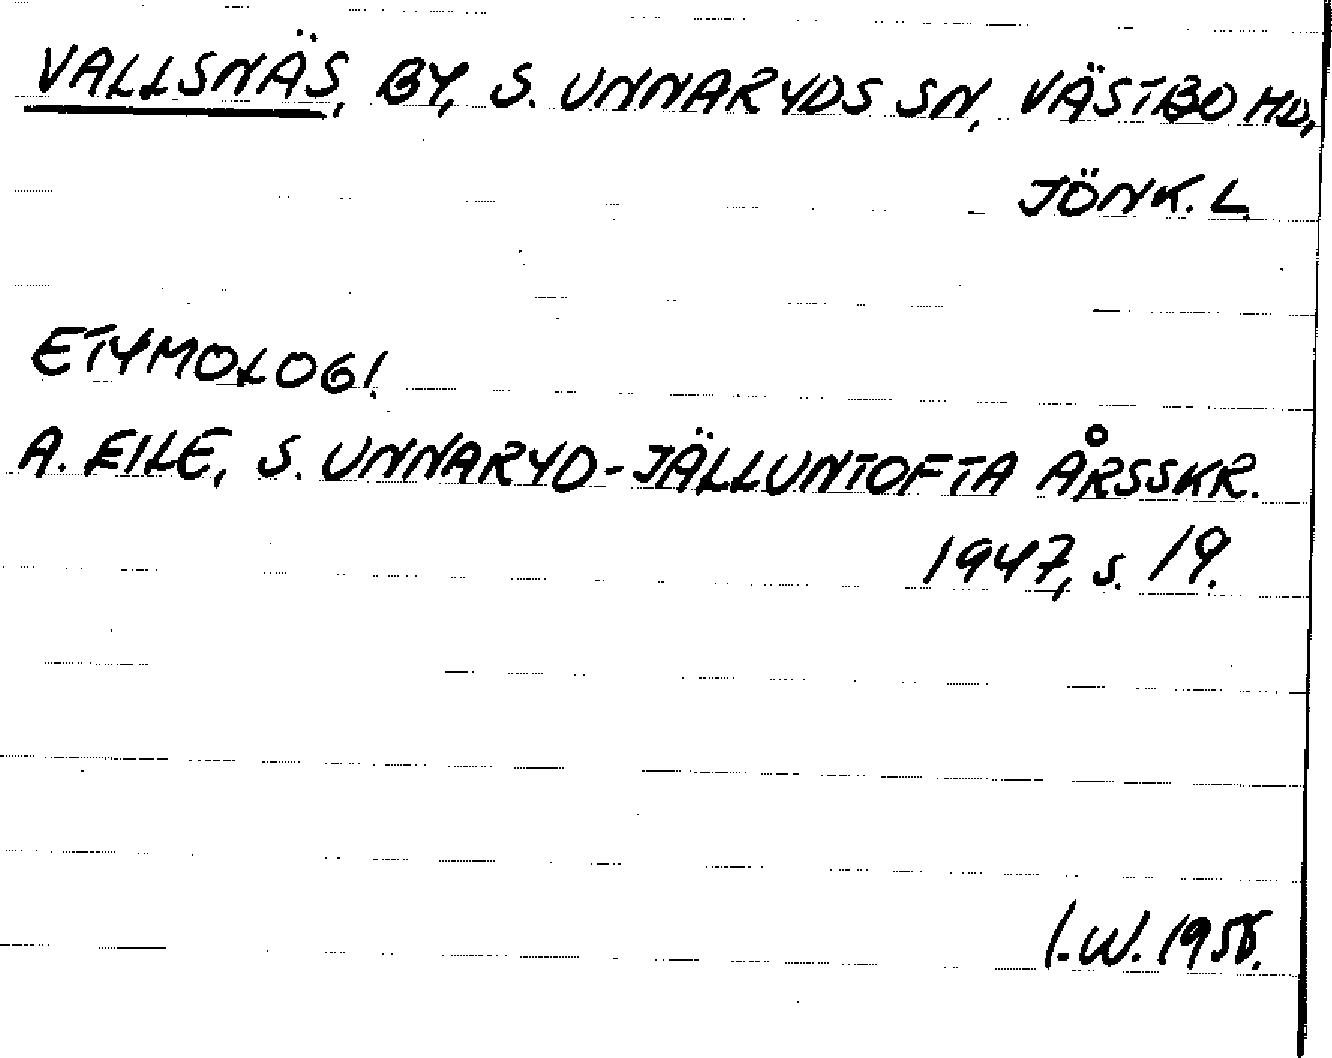 VALLSNÄS, BY, S. UNNARYDS SN, VÄSTBO HD,
JÖNK. L.
ETYMOLOGI.
A. EILE, S. UNNARYD-JÄLLUNTOFTA ÅRSSKR.
1947, s. 19.
I.W.